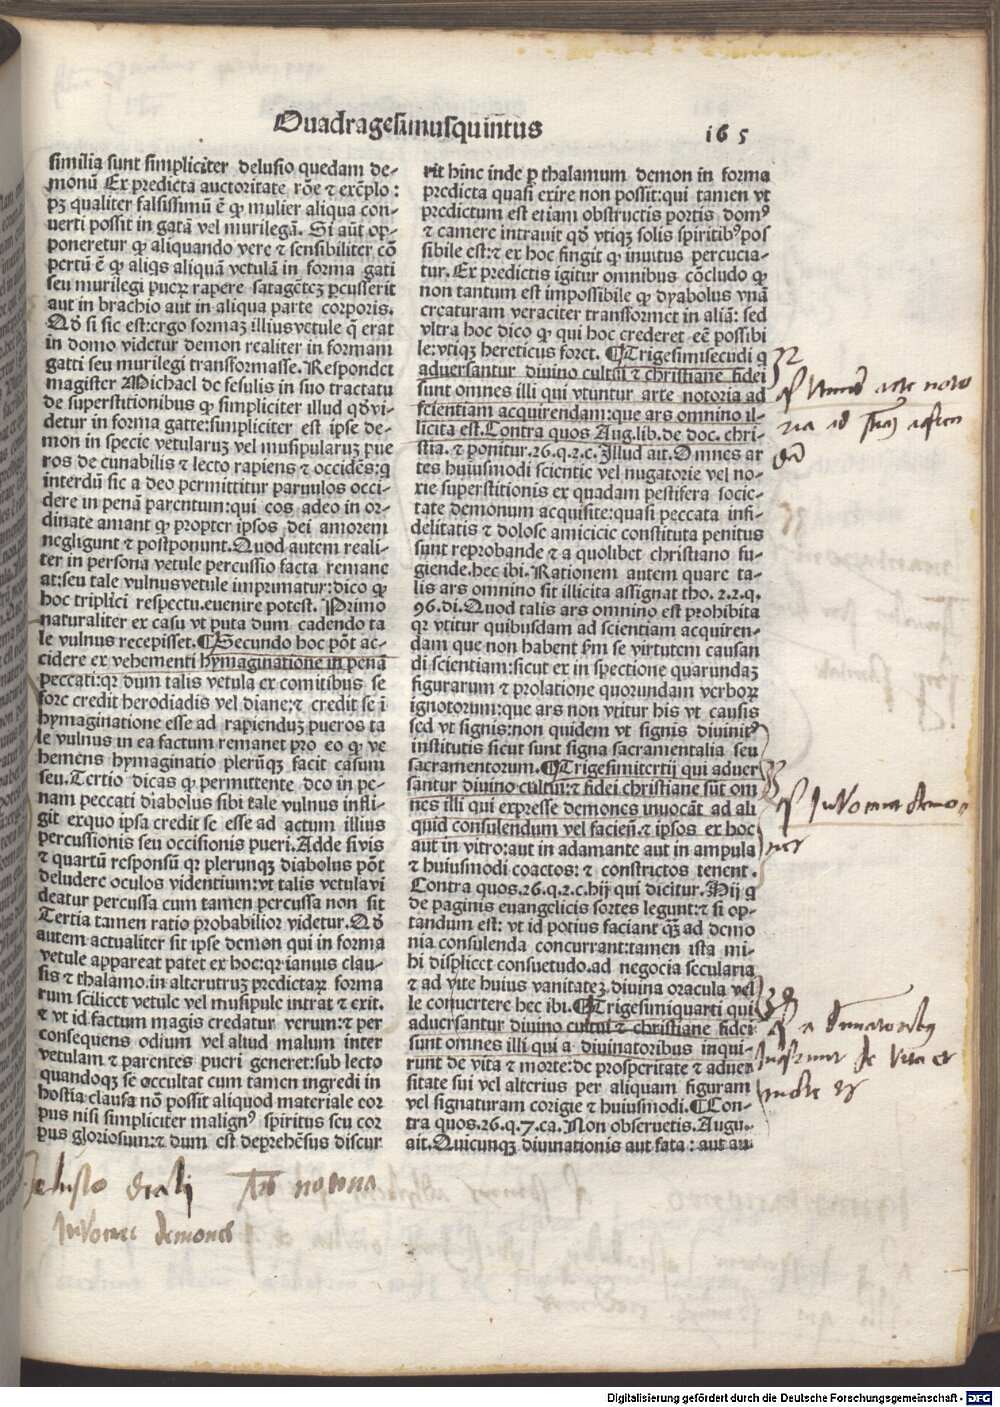 Quadragesimusquintus
165
similia sunt simpliciter delusio quedam de-
monũ Ex predicta auctoritate rõe ⁊ exẽplo:
pꝫ qualiter falsissimũ ẽ ꝙ mulier aliqua con-
uerti possit in gatã vel murilegã. Si aũt op-
poneretur ꝙ aliquando vere ⁊ sensibiliter cõ
pertũ ẽ ꝙ aliqs aliquã vetulã in forma gati
seu murilegi pueꝝ rapere satagẽteꝫ ꝑcusserit
aut in brachio aut in aliqua parte corporis.
Qđ si sic est:ergo formaꝫ illius vetule q̃ erat
in domo videtur demon realiter in formam
gatti seu murilegi transformasse. Respondet
magister Michael de fesulis in suo tractatu
de superstitionibus ꝙ simpliciter illud qđ vi-
detur in forma gatte:simpliciter est ipse de-
mon in specie vetularuꝫ vel musipularuꝫ pue
ros de cunabilis ⁊ lecto rapiens ⁊ occidẽs:q
interdũ sic a deo permittitur paruulos occi-
dere in penã parentum:qui eos adeo in or-
dinate amant ꝙ propter ipsos dei amorem
negligunt ⁊ postponunt.Quod autem reali-
ter in persona vetule percussio facta remane
at:seu tale vulnus vetule imprimatur:dico ꝙ
hoc triplici respectu.euenire potest. Primo
naturaliter ex casu vt puta dum cadendo ta
le vulnus recepisset.¶Secundo hoc põt ac-
cidere ex vehementi hymaginatione in penã
peccati:qꝛ dum talis vetula ex comitibus se
fore credit herodiadis vel diane;⁊ credit se ĩ
hymaginatione esse ad rapienduꝫ pueros ta
le vulnus in ea factum remanet pro eo ꝙ ve
hemens hymaginatio plerũqꝫ facit casum
seu.Tertio dicas ꝙ permittente deo in pe-
nam peccati diabolus sibi tale vulnus infli-
git exquo ipsa credit se esse ad actum illius
percussionis seu occisionis pueri.Adde si vis
⁊ quartũ responsũ qꝛ plerunqꝫ diabolus põt
deludere oculos videntium:vt talis vetula vi
deatur percussa cum tamen percussa non sit
Tertia tamen ratio probabilior videtur.Qđ
autem actualiter sit ipse demon qui in forma
vetule appareat patet ex hoc:qꝛ ianuis clau-
sis ⁊ thalamo.in alterutruꝫ predictaꝝ forma
rum scilicet vetule vel musipule intrat ⁊ exit.
⁊ vt id factum magis credatur verum:⁊ per
consequens odium vel aliud malum inter
vetulam ⁊ parentes pueri generet:sub lecto
quandoqꝫ se occultat cum tamen ingredi in
hostia clausa nõ possit aliquod materiale cor
pus nisi simpliciter malignꝰ spiritus seu cor
pus gloriosum:⁊ dum est deprehẽsus discur
rit hinc inde ꝑ thalamum demon in forma
predicta quasi exire non possit:qui tamen vt
predictum est etiam obstructis portis domꝰ
⁊ camere intrauit qđ vtiqꝫ solis spiritibꝰ pos
sibile est:⁊ ex hoc fingit ꝙ inuitus percucia-
tur. Ex predictis igitur omnibus cõcludo ꝙ
non tantum est impossibile ꝙ dyabolus vnã
creaturam veraciter transformet in aliã: sed
vltra hoc dico ꝙ qui hoc crederet eẽ possibi
le:vtiqꝫ hereticus foret. ¶Trigesimisecũdi q
aduersantur diuino cultui ⁊ christiane fidei
sunt omnes illi qui vtuntur arte notoria ad
scientiam acquirendam:que ars omnino il-
licita est.Contra quos Aug.lib.de doc. chri-
stia. ⁊ ponitur.26.q.2.c.Illud aũt.Omnes ar
tes huiusmodi scientie vel nugatorie vel no-
xie superstitionis ex quadam pestifera socie-
tate demonum acquisite:quasi peccata infi-
delitatis ⁊ dolose amicicie constituta penitus
sunt reprobande ⁊ a quolibet christiano fu-
giende.hec ibi. Rationem autem quare ta-
lis ars omnino sit illicita assignat tho. 2.2.q.
96.di.Quod talis ars omnino est prohibita
qꝛ vtitur quibusdam ad scientiam acquiren-
dam que non habent ẜm se virtutem causan
di scientiam:sicut ex in spectione quarundaꝫ
figurarum ⁊ prolatione quorundam verboꝝ
ignotorum:que ars non vtitur his vt causis
sed vt signis:non quidem vt signis diuinitꝰ
institutis sicut sunt signa sacramentalia seu
sacramentorum.¶Trigesimitertij qui aduer
santur diuino cultui:⁊ fidei christiane sũt om
nes illi qui expresse demones inuocãt ad ali
quid consulendum vel facien.⁊ ipsos ex hoc
aut in vitro:aut in adamante aut in ampula
⁊ huiusmodi coactos: ⁊ constrictos tenent.
Contra quos.26.q.2.c.hij qui dicitur.Hij q
de paginis euangelicis sortes legunt:⁊ si op-
tandum est: vt id potius faciant qꝫ ad demo
nia consulenda concurrant:tamen ista mi-
hi displicet consuetudo.ad negocia secularia
⁊ ad vite huius vanitateꝫ diuina oracula vel
le conuertere hec ibi.¶Trigesimiquarti qui
aduersantur diuino cultui ⁊ christiane fidei
sunt omnes illi qui a diuinatoribus inqui-
runt de vita ⁊ morte:de prosperitate ⁊ aduer
sitate sui vel alterius per aliquam figuram
vel signaturam corigie ⁊ huiusmodi.¶Con-
tra quos.26.q.7.ca.Non obseruetis.Augu-
ait.Quicunqꝫ diuinationis aut fata: aut au
32
arte noto
ria ad
33
Inuocant demo-
nes
34
a diuinatoribꝰ
Inqrunt de vita et
morte
Ars notoria
Inuocare demones
Digitalisierung gefördert durch die Deutsche Forschungsgemeinschaft - DFG